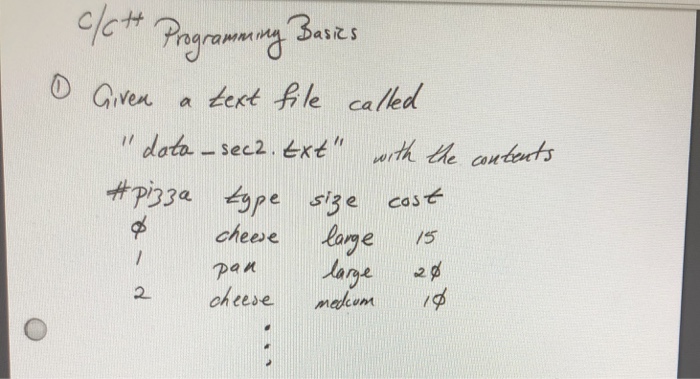 C/C++ Programming Basics
① Given a text file called
"data_sec2.txt" with the contents
#pizza type size cost
0 cheese large 15
1 pan large 20
2 cheese medium 10
⋮